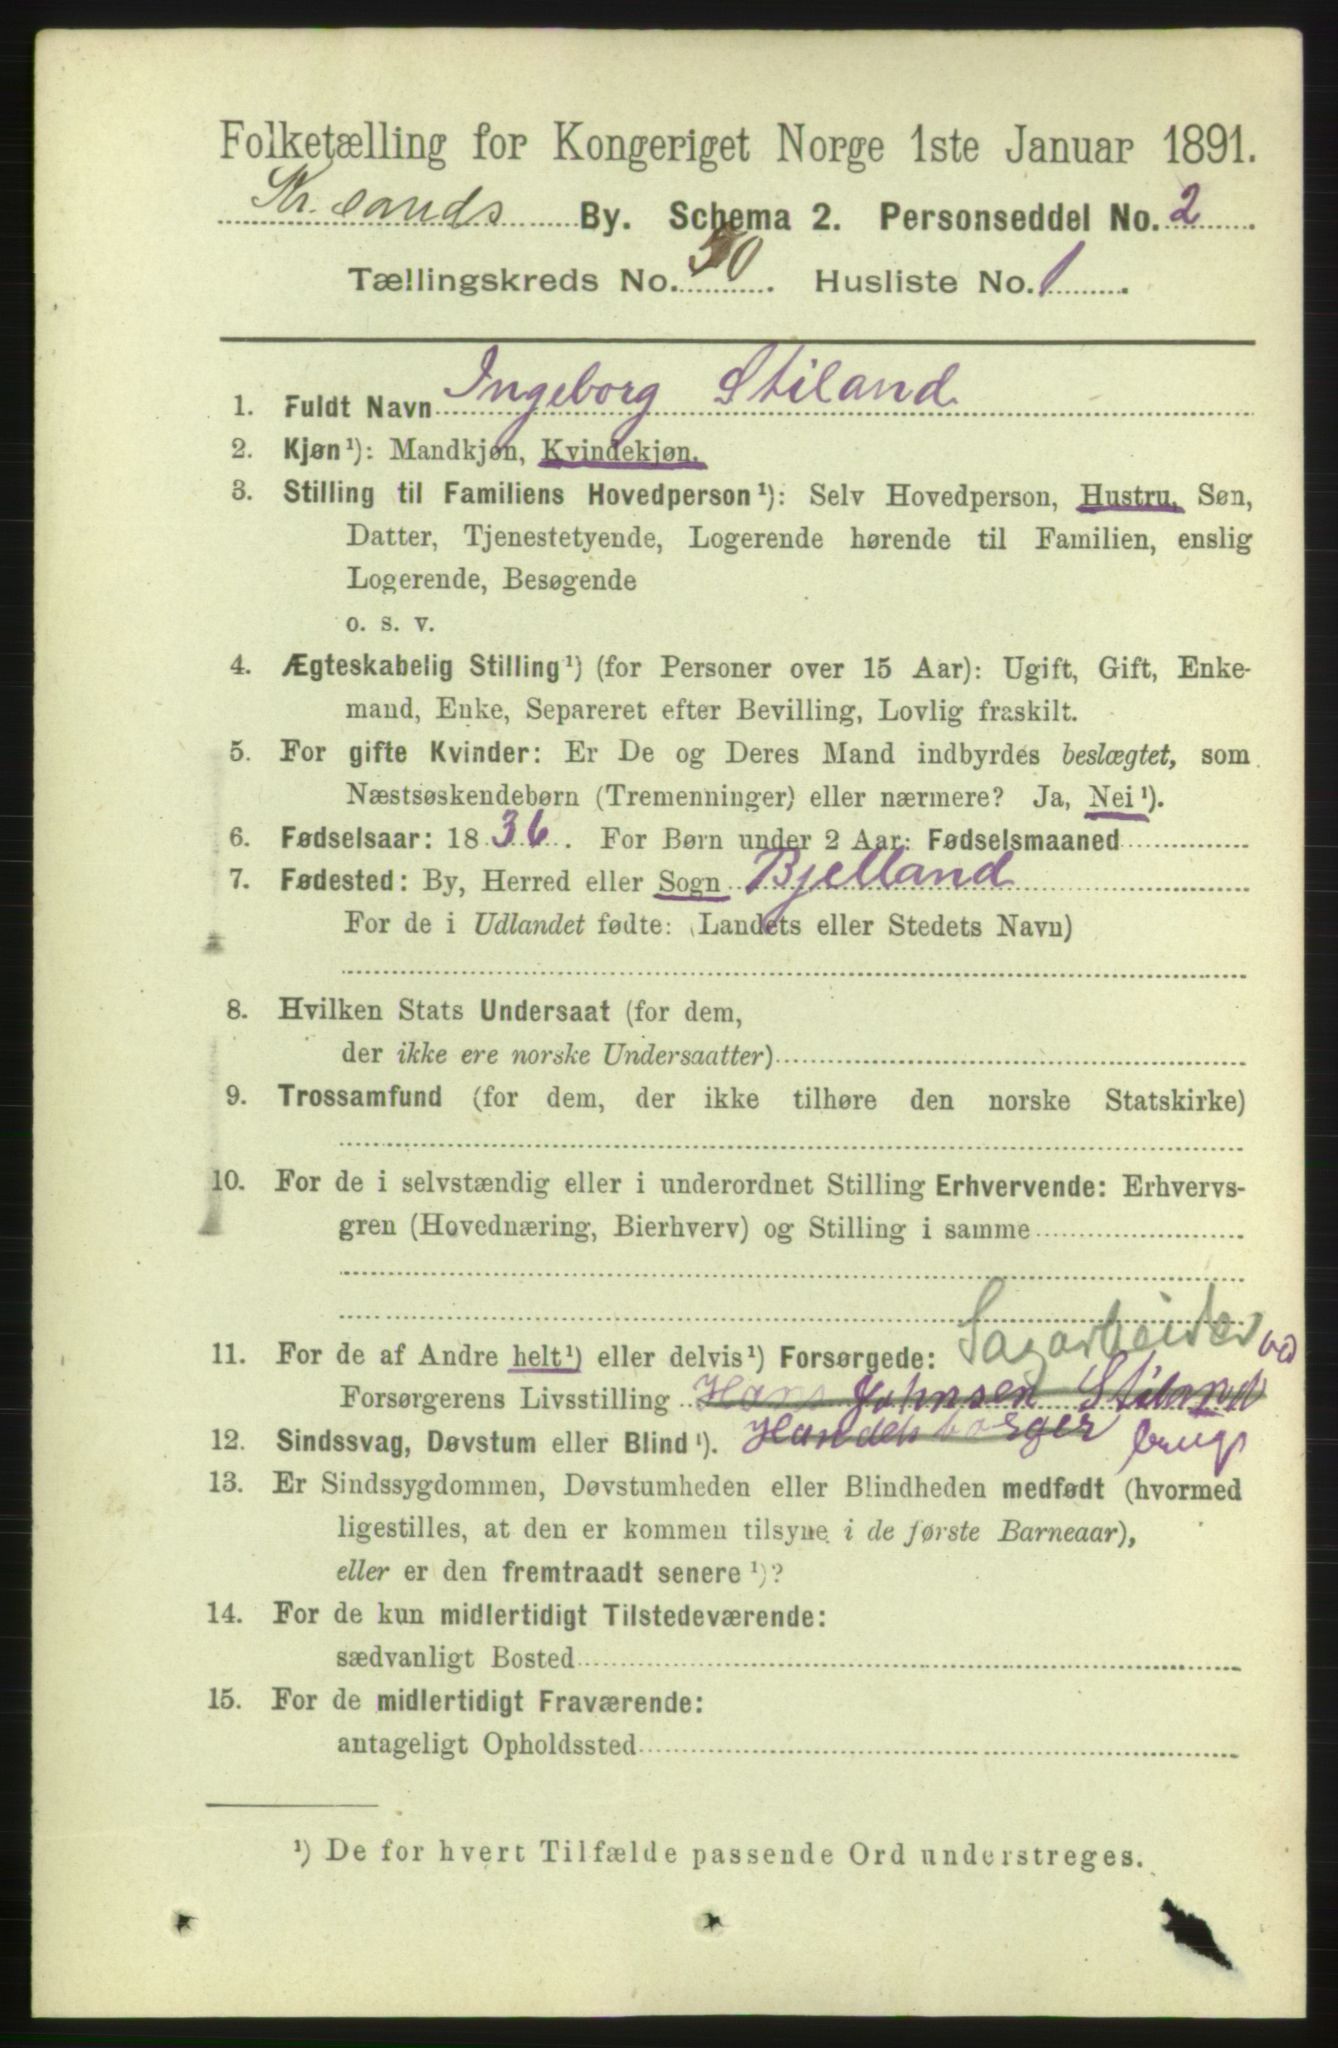 Folketælling for Kongeriget Norge 1ste Januar 1891.
Kr.sands By. Schema 2. Personseddel No. 2.
Tællingskreds No. 30. Husliste No. 1.
1. Fuldt Navn Ingeborg Stiland
2. Kjøn¹): Mandkjøn, Kvindekjøn.
3. Stilling til Familiens Hovedperson¹): Selv Hovedperson, Hustru, Søn,
Datter, Tjenestetyende, Logerende hørende til Familien, enslig
Logerende, Besøgende
o. s. v.
4. Ægteskabelig Stilling¹) (for Personer over 15 Aar): Ugift, Gift, Enke-
mand, Enke, Separeret efter Bevilling, Lovlig fraskilt.
5. For gifte Kvinder: Er De og Deres Mand indbyrdes beslægtet, som
Næstsøskendebørn (Tremenninger) eller nærmere? Ja, Nei¹).
6. Fødselsaar: 1836. For Børn under 2 Aar: Fødselsmaaned
7. Fødested: By, Herred eller Sogn Bjelland
For de i Udlandet fødte: (Landets eller Stedets Navn)
8. Hvilken Stats Undersaat (for dem,
der ikke ere norske Undersaatter)
9. Trossamfund (for dem, der ikke tilhøre den norske Statskirke)
10. For de i selvstændig eller i underordnet Stilling Erhvervende: Erhvervs-
gren (Hovednæring, Bierhverv) og Stilling i samme
11. For de af Andre helt¹) eller delvis¹) Forsørgede: Sagarbeider ved
Forsørgerens Livsstilling Hans Johnsen Stiland
12. Sindssvag, Døvstum eller Blind¹). Handelsborger brug
13. Er Sindssygdommen, Døvstumheden eller Blindheden medfødt (hvormed
ligestilles, at den er kommen tilsyne i de første Barneaar),
eller er den fremtraadt senere¹)?
14. For de kun midlertidigt Tilstedeværende:
sædvanligt Bosted
15. For de midlertidigt Fraværende:
antageligt Opholdssted
¹) De for hvert Tilfælde passende Ord understreges.